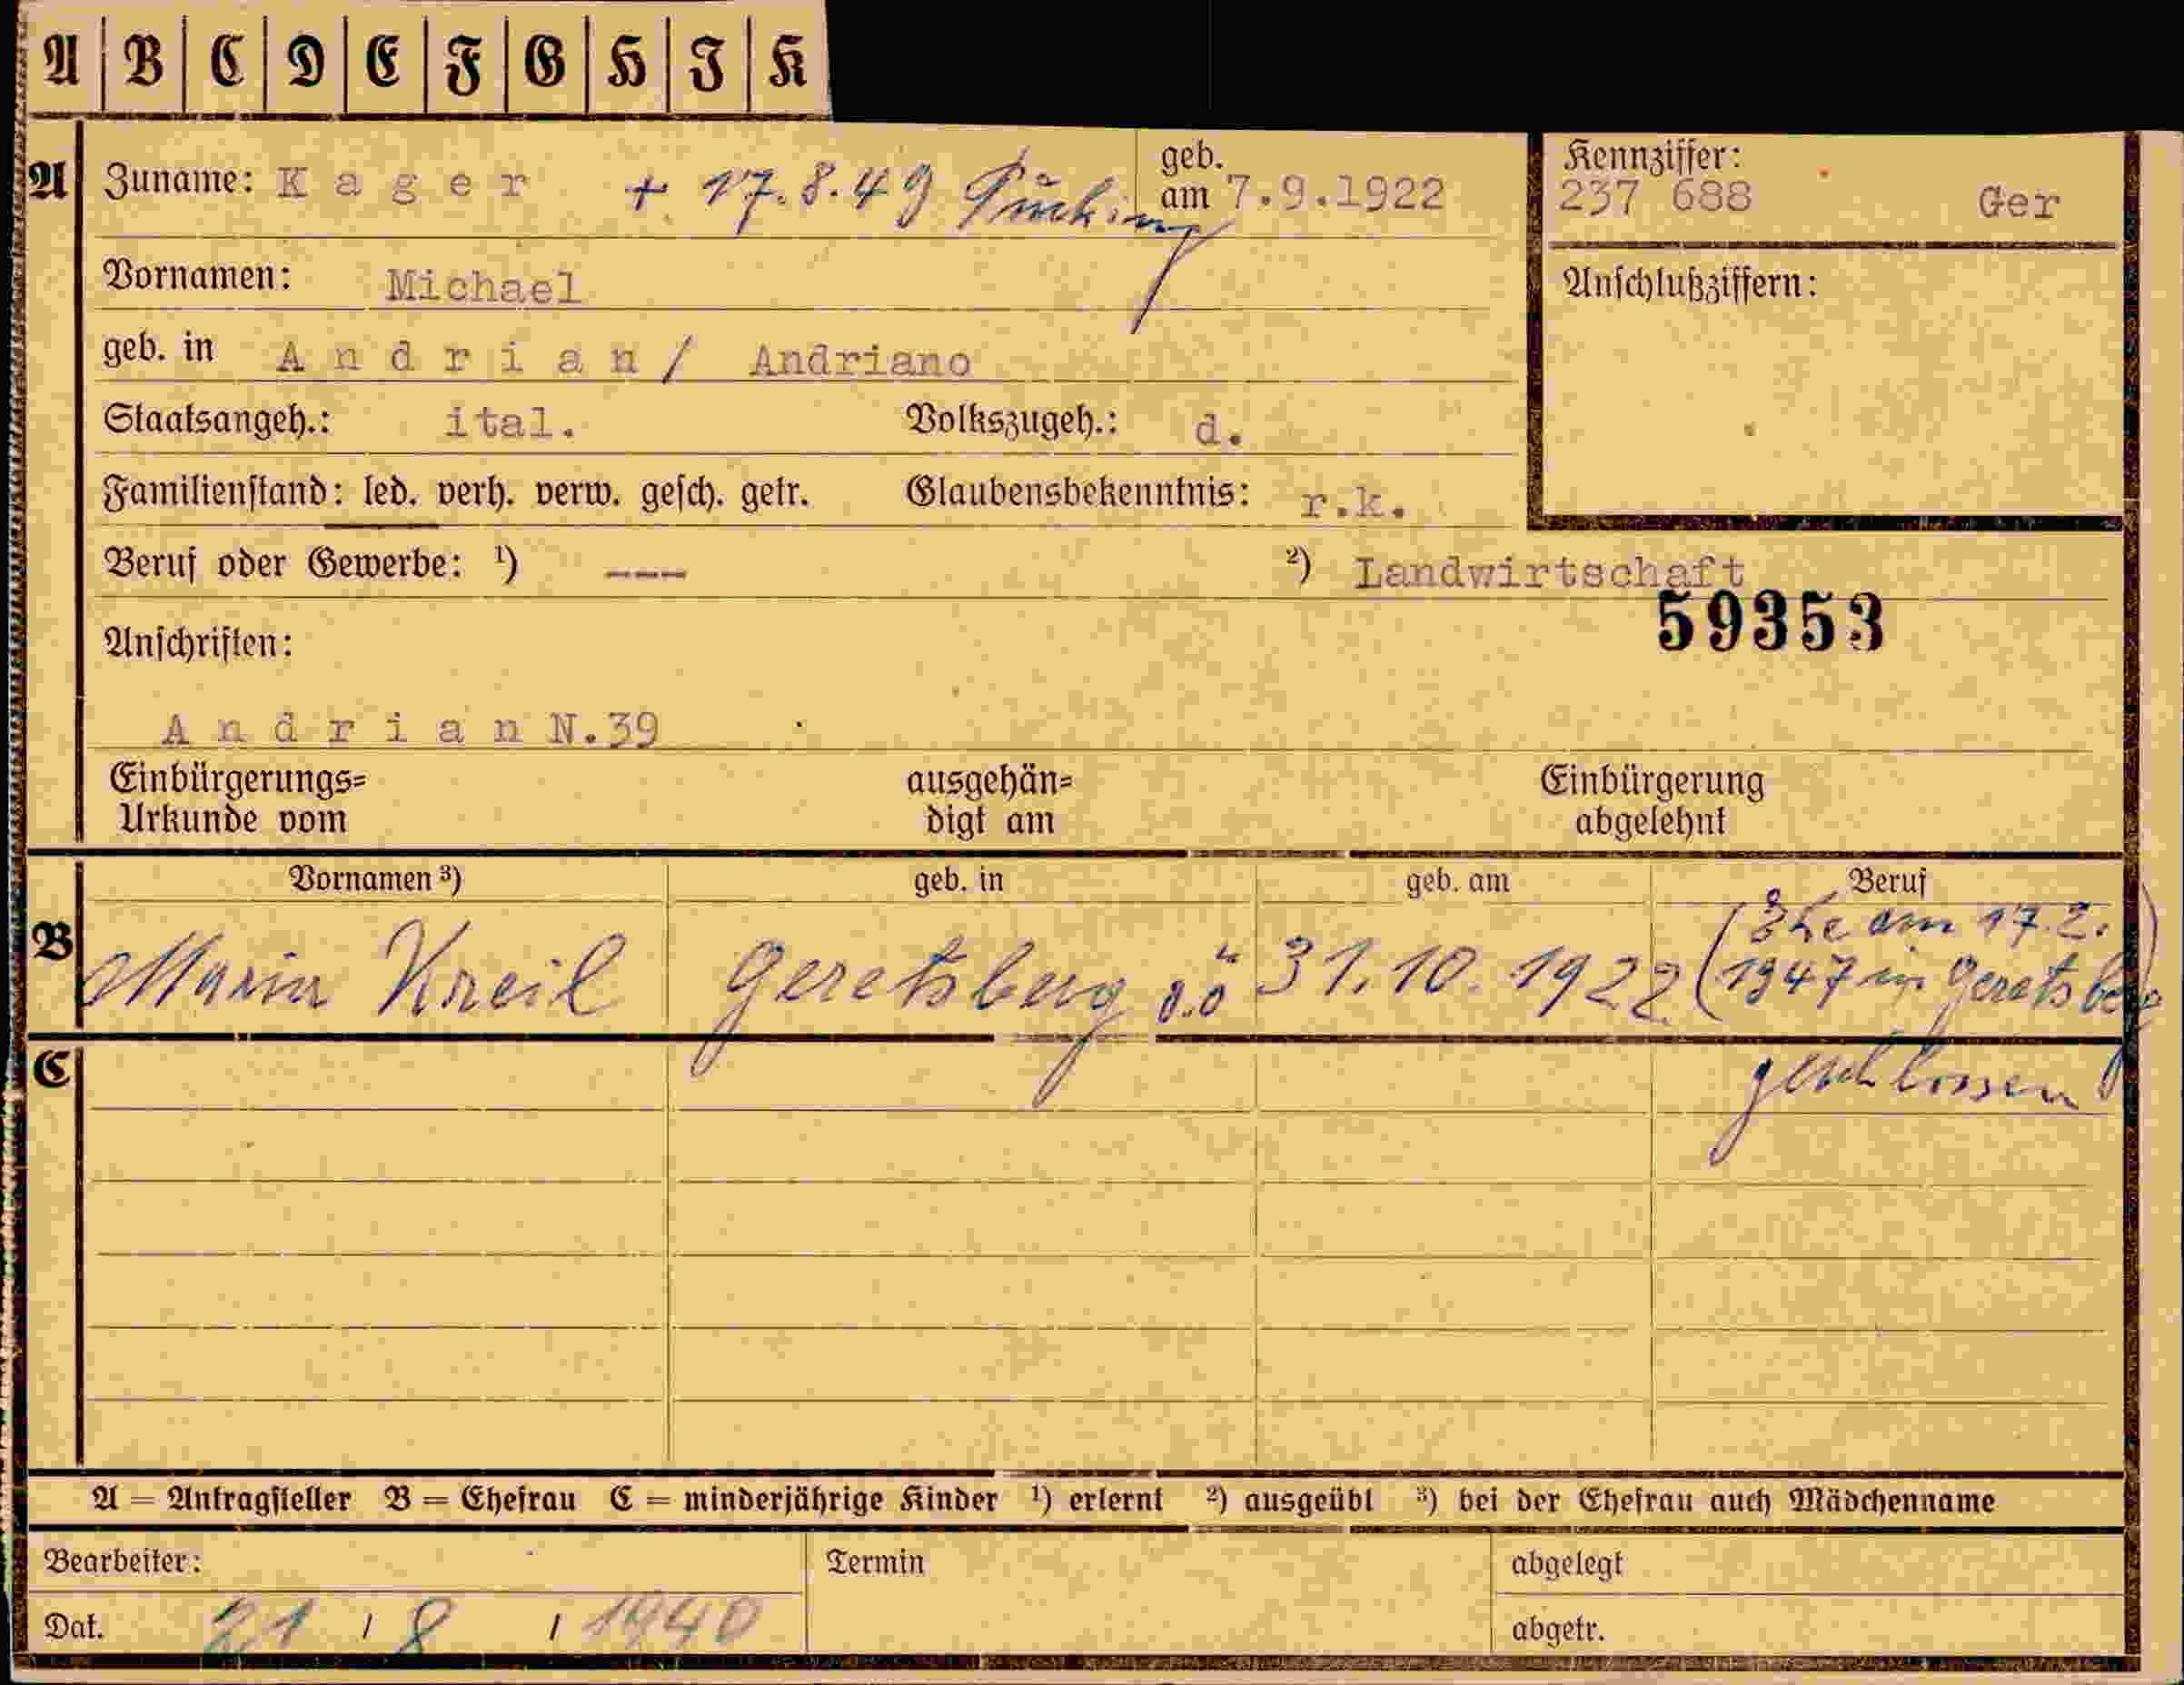 A B C D E F G H I K
A Zuname: Kager + 17.8.49 geb. am 7.9.1922
Kennziffer:
237 688 Ger
Vornamen: Michael
Anschlußziffern:
geb. in Andrian/ Andriano
Staatsangeh.: ital. Volkszugeh.: d.
Familienstand: led. verh. verw. gesch. getr. Glaubensbekenntnis: r.k.
Beruf oder Gewerbe: ¹) --- ²) Landwirtschaft
59353
Anschriften:
Andrian N.39
Einbürgerungs= ausgehän= Einbürgerung
Urkunde vom digt am abgelehnt
Vornamen ³) geb. in geb. am Beruf
B Maria Kreil Geretsberg o.ö 31.10.1922 (Ehe am 17.2.
1947 in Geretsberg
C geschlossen)
A = Antragsteller B = Ehefrau C = minderjährige Kinder ¹) erlernt ²) ausgeübt ³) bei der Ehefrau auch Mädchenname
Bearbeiter: Termin abgelegt
Dat. 21 / 8 / 1940 abgetr.